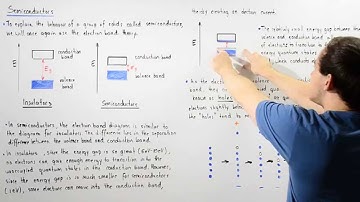 Semiconductors
• To explain the behavior of a group of solids called semiconductors,
we will once again use the electron band theory.
E
conduction
band
Eg
valence
band
Insulators
E
conduction
band
Eg
valence
band
Semiconductors
• In semiconductors, the electron band diagram is similar to
the diagram for insulators. The difference lies in the separation
difference between the valence band and conduction band.
• In insulators, since the energy gap is so great
no electrons can gain enough energy to transition into the
unoccupied quantum states in the conduction band. However,
since the energy gap is much smaller for semiconductors
(1eV), some electrons can move into the conduction band,
thereby creating an electric current.
E
• The relatively small energy gap between the
and conduction band
electrons to transition
quantum states
conduct
• As the electrons
band, they
known as holes
electrons slightly below
the "holes" tend to